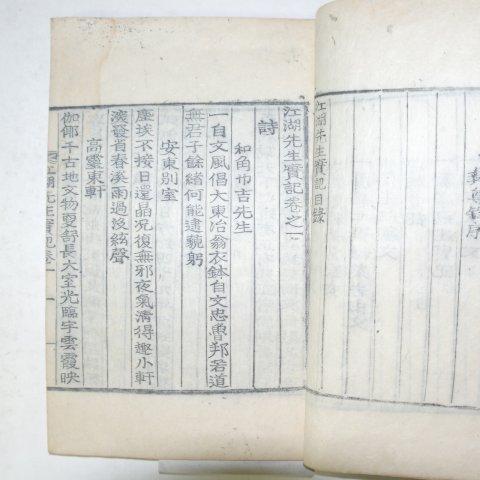 江湖先生實記目錄
江湖先生實記卷之一
詩
和角巾吉先生
一自文風倡大東冶翁衣鉢自文忠魯邦若道
無君子餘緖何能逮藐躬
安東別室
塵埃不接日還晶況復無邪夜氣淸得趣小軒
濱發省春溪雨過沒絃聲
高靈東軒
伽倻千古地文物夏舒長大室光臨宇雲霞映
江湖先生實記卷一